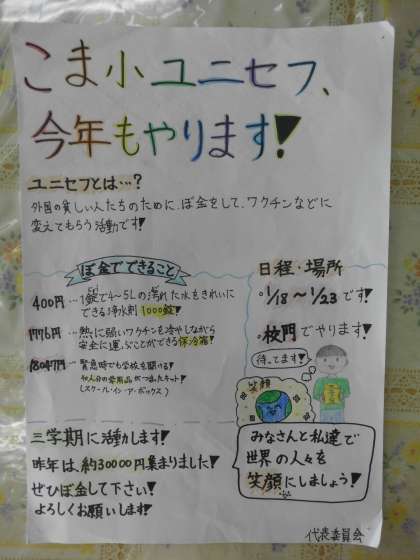 こま小ユニセフ、
今年もやります!
ユニセフとは…?
外国の貧しい人たちのために、ぼ金をして、ワクチンなどに
変えてもらう活動です!
ぼ金でできること
400円…1錠で4～5Lの濁れた水をきれいに
できる浄水剤 1000錠!
1776円…熱に弱いワクチンを冷やしながら
安全に運ぶことができる保冷箱!
18047円…緊急時でも学校を開ける!
40人分の学用品がつまったキット!
(スクール・イン・ア・ボックス)
日程・場所
1/18～1/23です!
校門でやります!
待ってます!
笑顔
三学期に活動します!
昨年は、約30000円集まりました!
ぜひぼ金して下さい!
よろしくお願いします!
みなさんと私達で
世界の人々を
笑顔にしましょう!
代表委員会